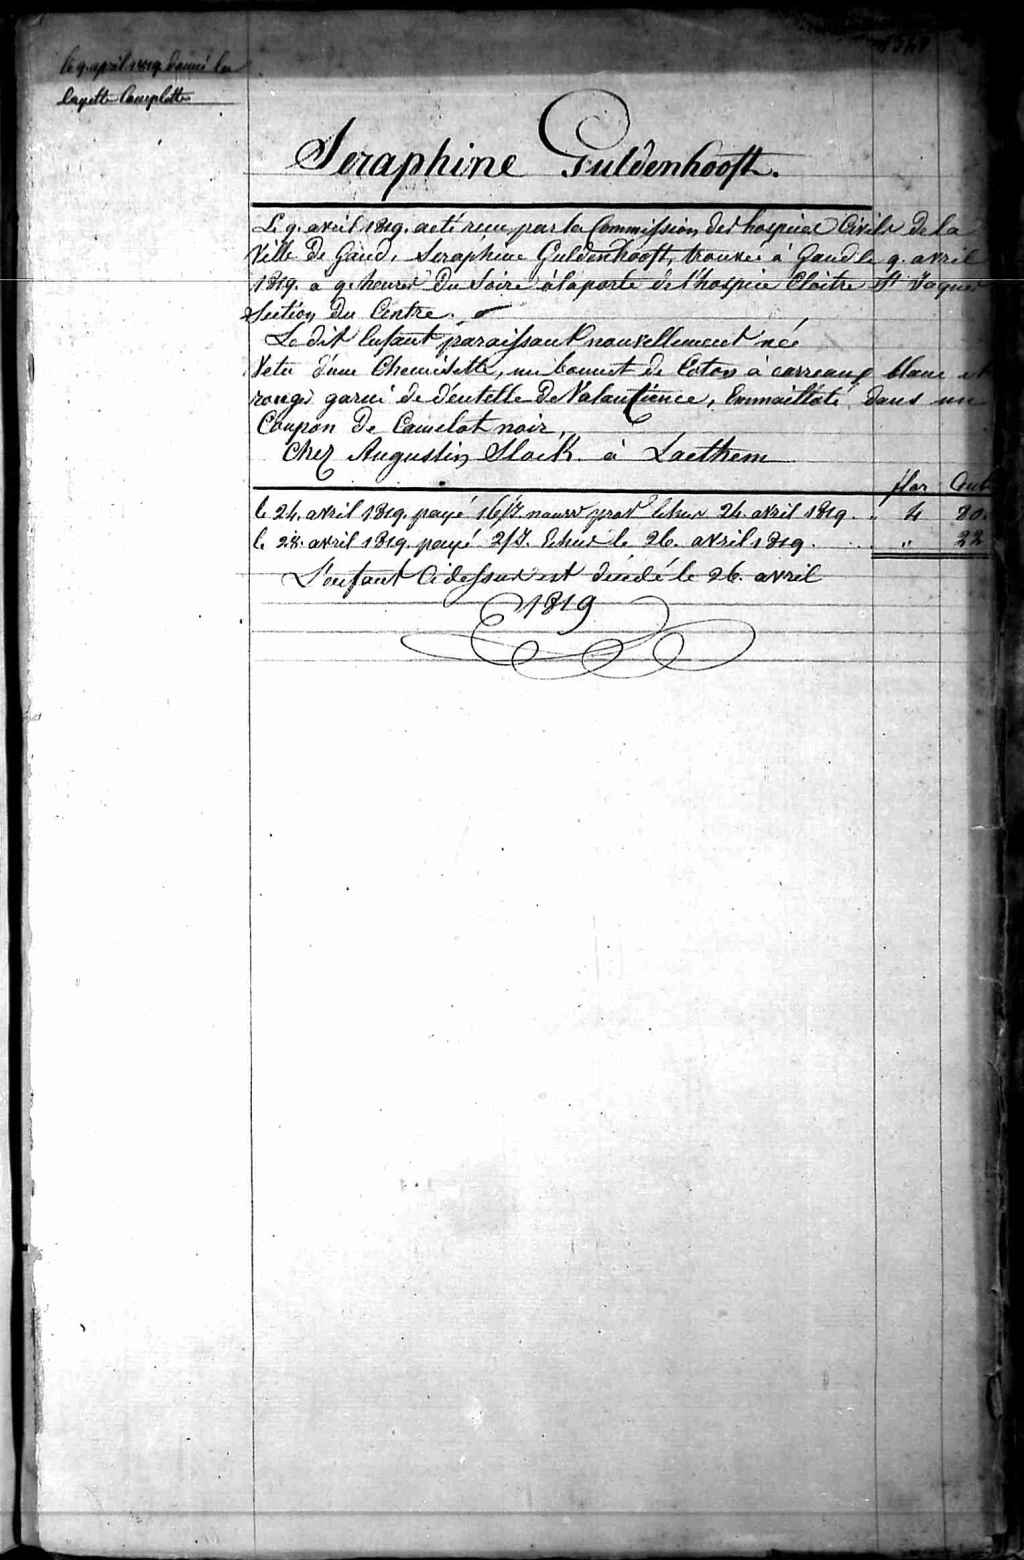 le 9. april 1819 donné la
layette Complette
Seraphine Guldenhooft.
Le 9. avril 1819. a eté recu par la Commission des hospices Civils de la
Ville de Gand, Seraphine Guldenhooft, trouvée à Gand le 9. avril
1819. a 9. heures Du Soire à la porte de l'hospice Cloitre St Jaques
Section Du Centre.
Le dit Enfant paraissant nouvellement née
Vetu d'une Chemisette, un bonnet de Coton à carreaux blanc et
rouge garni de dentelle De Valancience, Emmailloté dans un
Coupon De Camelot noir,
Chez Augustin Slock à Laethem
flor Cent
le 24. avril 1819. payé 16/J. echus 24. avril 1819. " 4 80.
le 28. avril 1819. payé 2/J. Echus le 26. avril 1819. " 22
L'enfant Cidessus est décédé le 26. avril
1819